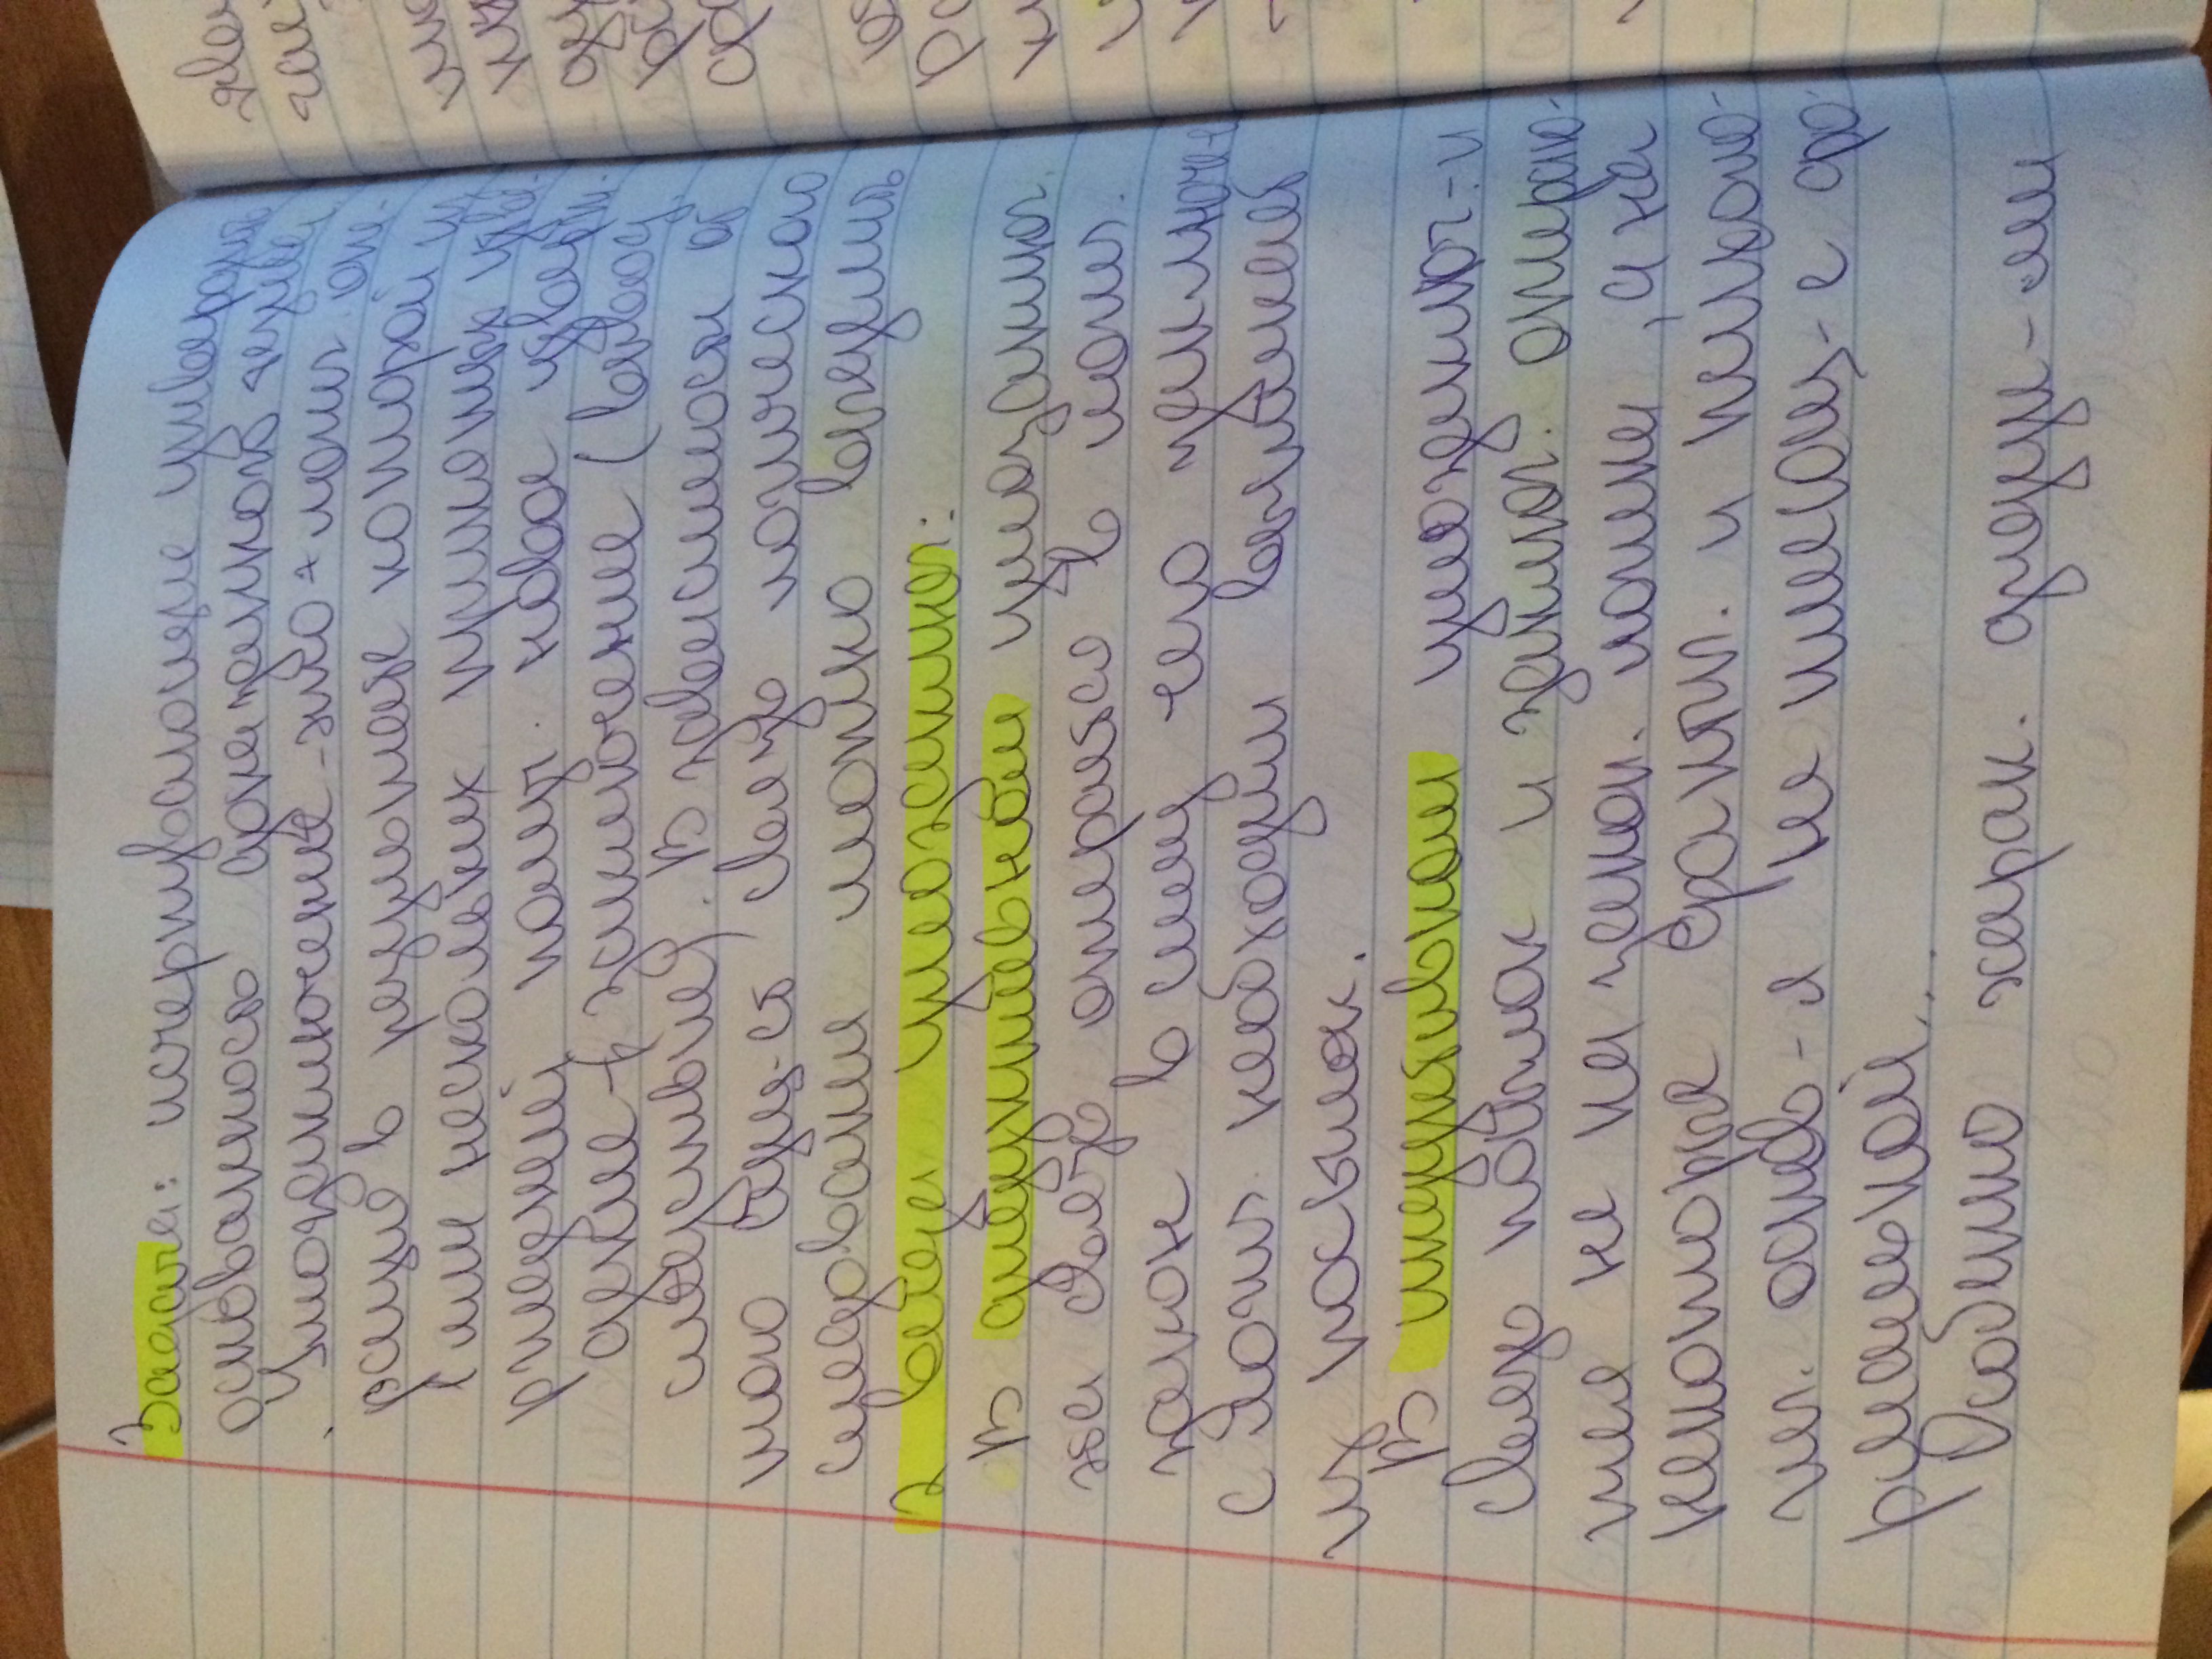 Задача: исчерпывающие утвердить
основанность доказанного тезиса
. Умозаключение - это + логич. опе-
рация в результате которой из
1 или нескольких принятых утве-
рждений получ. новое утверж-
дение - заключение (вывод,
следствие). В зависимости от
того сущ-ет связь логического
следования можно выделить
2 вида умозаключ:
В дидуктивном умозаключ.
эта связь опирается в логич.
закон в силу чего заключен
с логич. необходим вытекает
из посылок.
В индуктивном умозаключ-и
связь посылок и заключ. опираю-
тся не на закон. логики, а на
некоторые фактич. и психоло-
гич. основ-я не имеющ-е фо-
рмальной...
Особенно харак. дидукц-ми